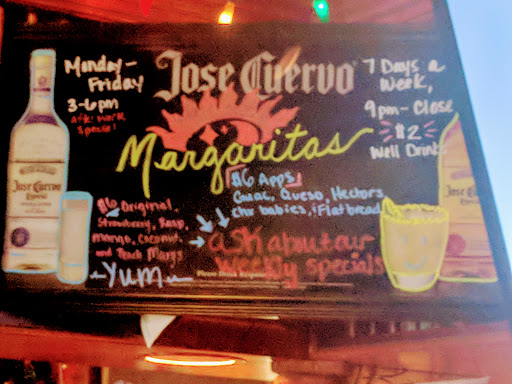 Monday-
Friday
3-6pm
aftr work
Special!
Jose Cuervo
Margaritas
7 Days a
Week,
9pm-Close
$2
Well Drink
$6 Apps
Guac, Queso, Hectors,
chx babies, Flatbread
$6 Original,
Strawberry, Rasp,
Mango, Coconut,
and Peach Margs
YUM
ask about our
Weekly specials
Please Drink Responsibly
Jose Cuervo
Jose Cu